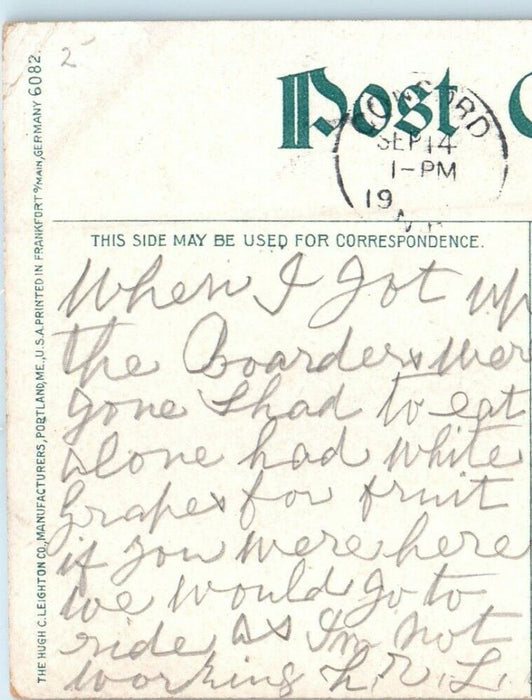 2
Post C
CONCORD
SEP 14
1-PM
19
N.H.
THIS SIDE MAY BE USED FOR CORRESPONDENCE.
When I Got up
the Boarders wer
gone I had to eat
alone had white
Grapes for fruit
if you were here
we would go to
ride as Im not
working L.R.L.
THE HUGH C. LEIGHTON CO., MANUFACTURERS, PORTLAND, ME., U.S.A. PRINTED IN FRANKFORT o/MAIN, GERMANY 6082.